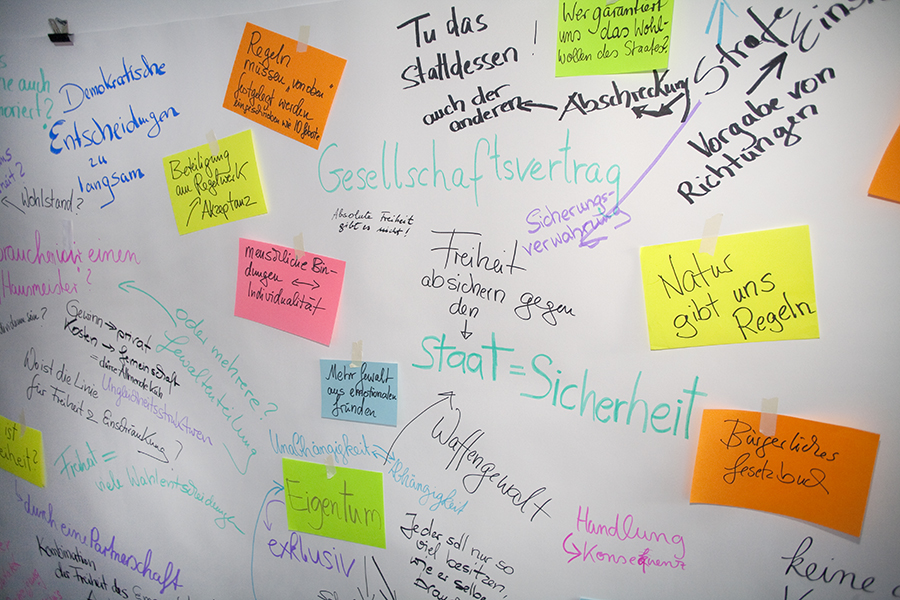 Tu das
stattdessen !
auch der
anderen
Abschreckung
Strafe
Vorgabe von
Richtungen
Wer garantiert
uns das Wohl-
wollen des Staates?
Regeln
müssen "von oben"
festgelegt werden
wie 10 Gebote
Demokratische
Entscheidungen
zu
langsam
Beteiligung
am Regelwerk
Akzeptanz
Wohlstand?
Gesellschaftsvertrag
Absolute Freiheit
gibt es nicht!
Sicherungs-
verwahrung
Freiheit
absichern gegen
den
Staat = Sicherheit
Natur
gibt uns
Regeln
menschliche Bin-
dungen
Individualität
einen
Hausmeister?
Gewinn → privat
Kosten → Gemeinschaft
oder mehrere?
Gewaltenteilung
Wo ist die Linie
für Freiheit 2 Einschränkung?
Mehr Gewalt
aus emotionalen
Gründen
Freiheit =
viele Wahlentscheidungen
Unabhängigkeit
Abhängigkeit
Waffengewalt
Eigentum
exklusiv
Bürgerliches
Gesetzbuch
Handlung
Konsequenz
Jeder soll nur so
viel besitzen,
wie er selber
ist
durch eine Partnerschaft
Kombination
der Freiheit des
keine